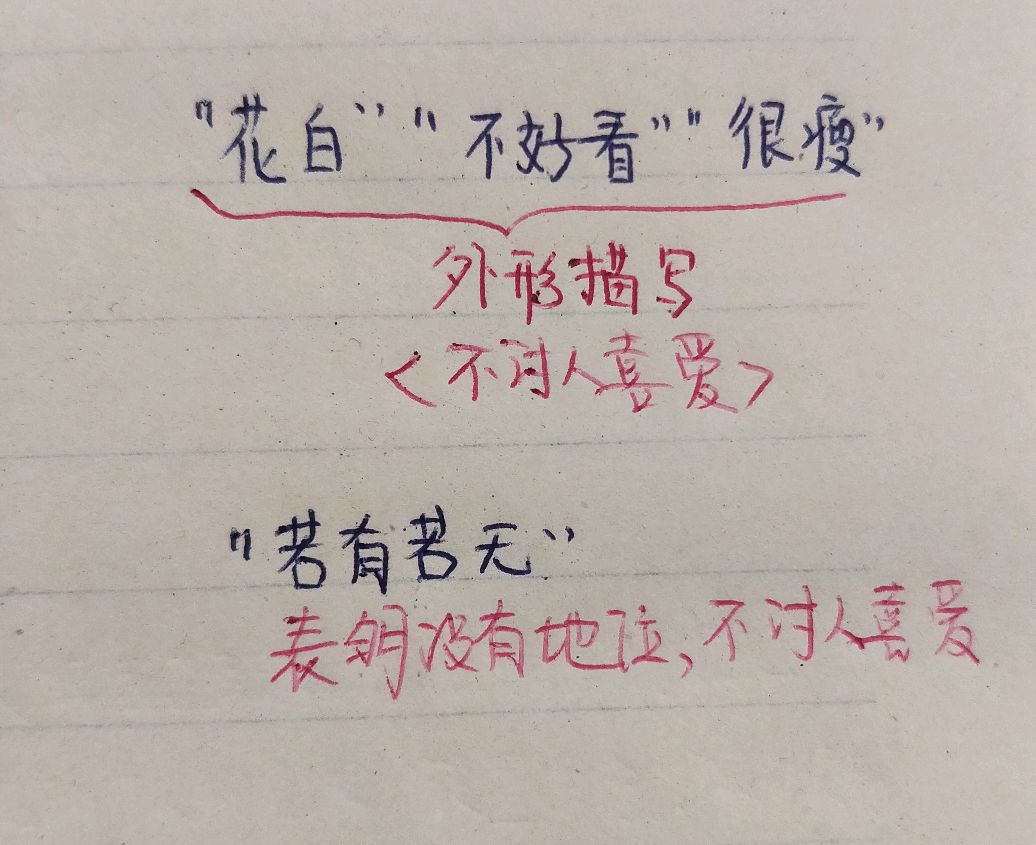 "花白""不好看""很瘦"
外形描写
<不讨人喜爱>
"若有若无"
表明没有地位,不讨人喜爱